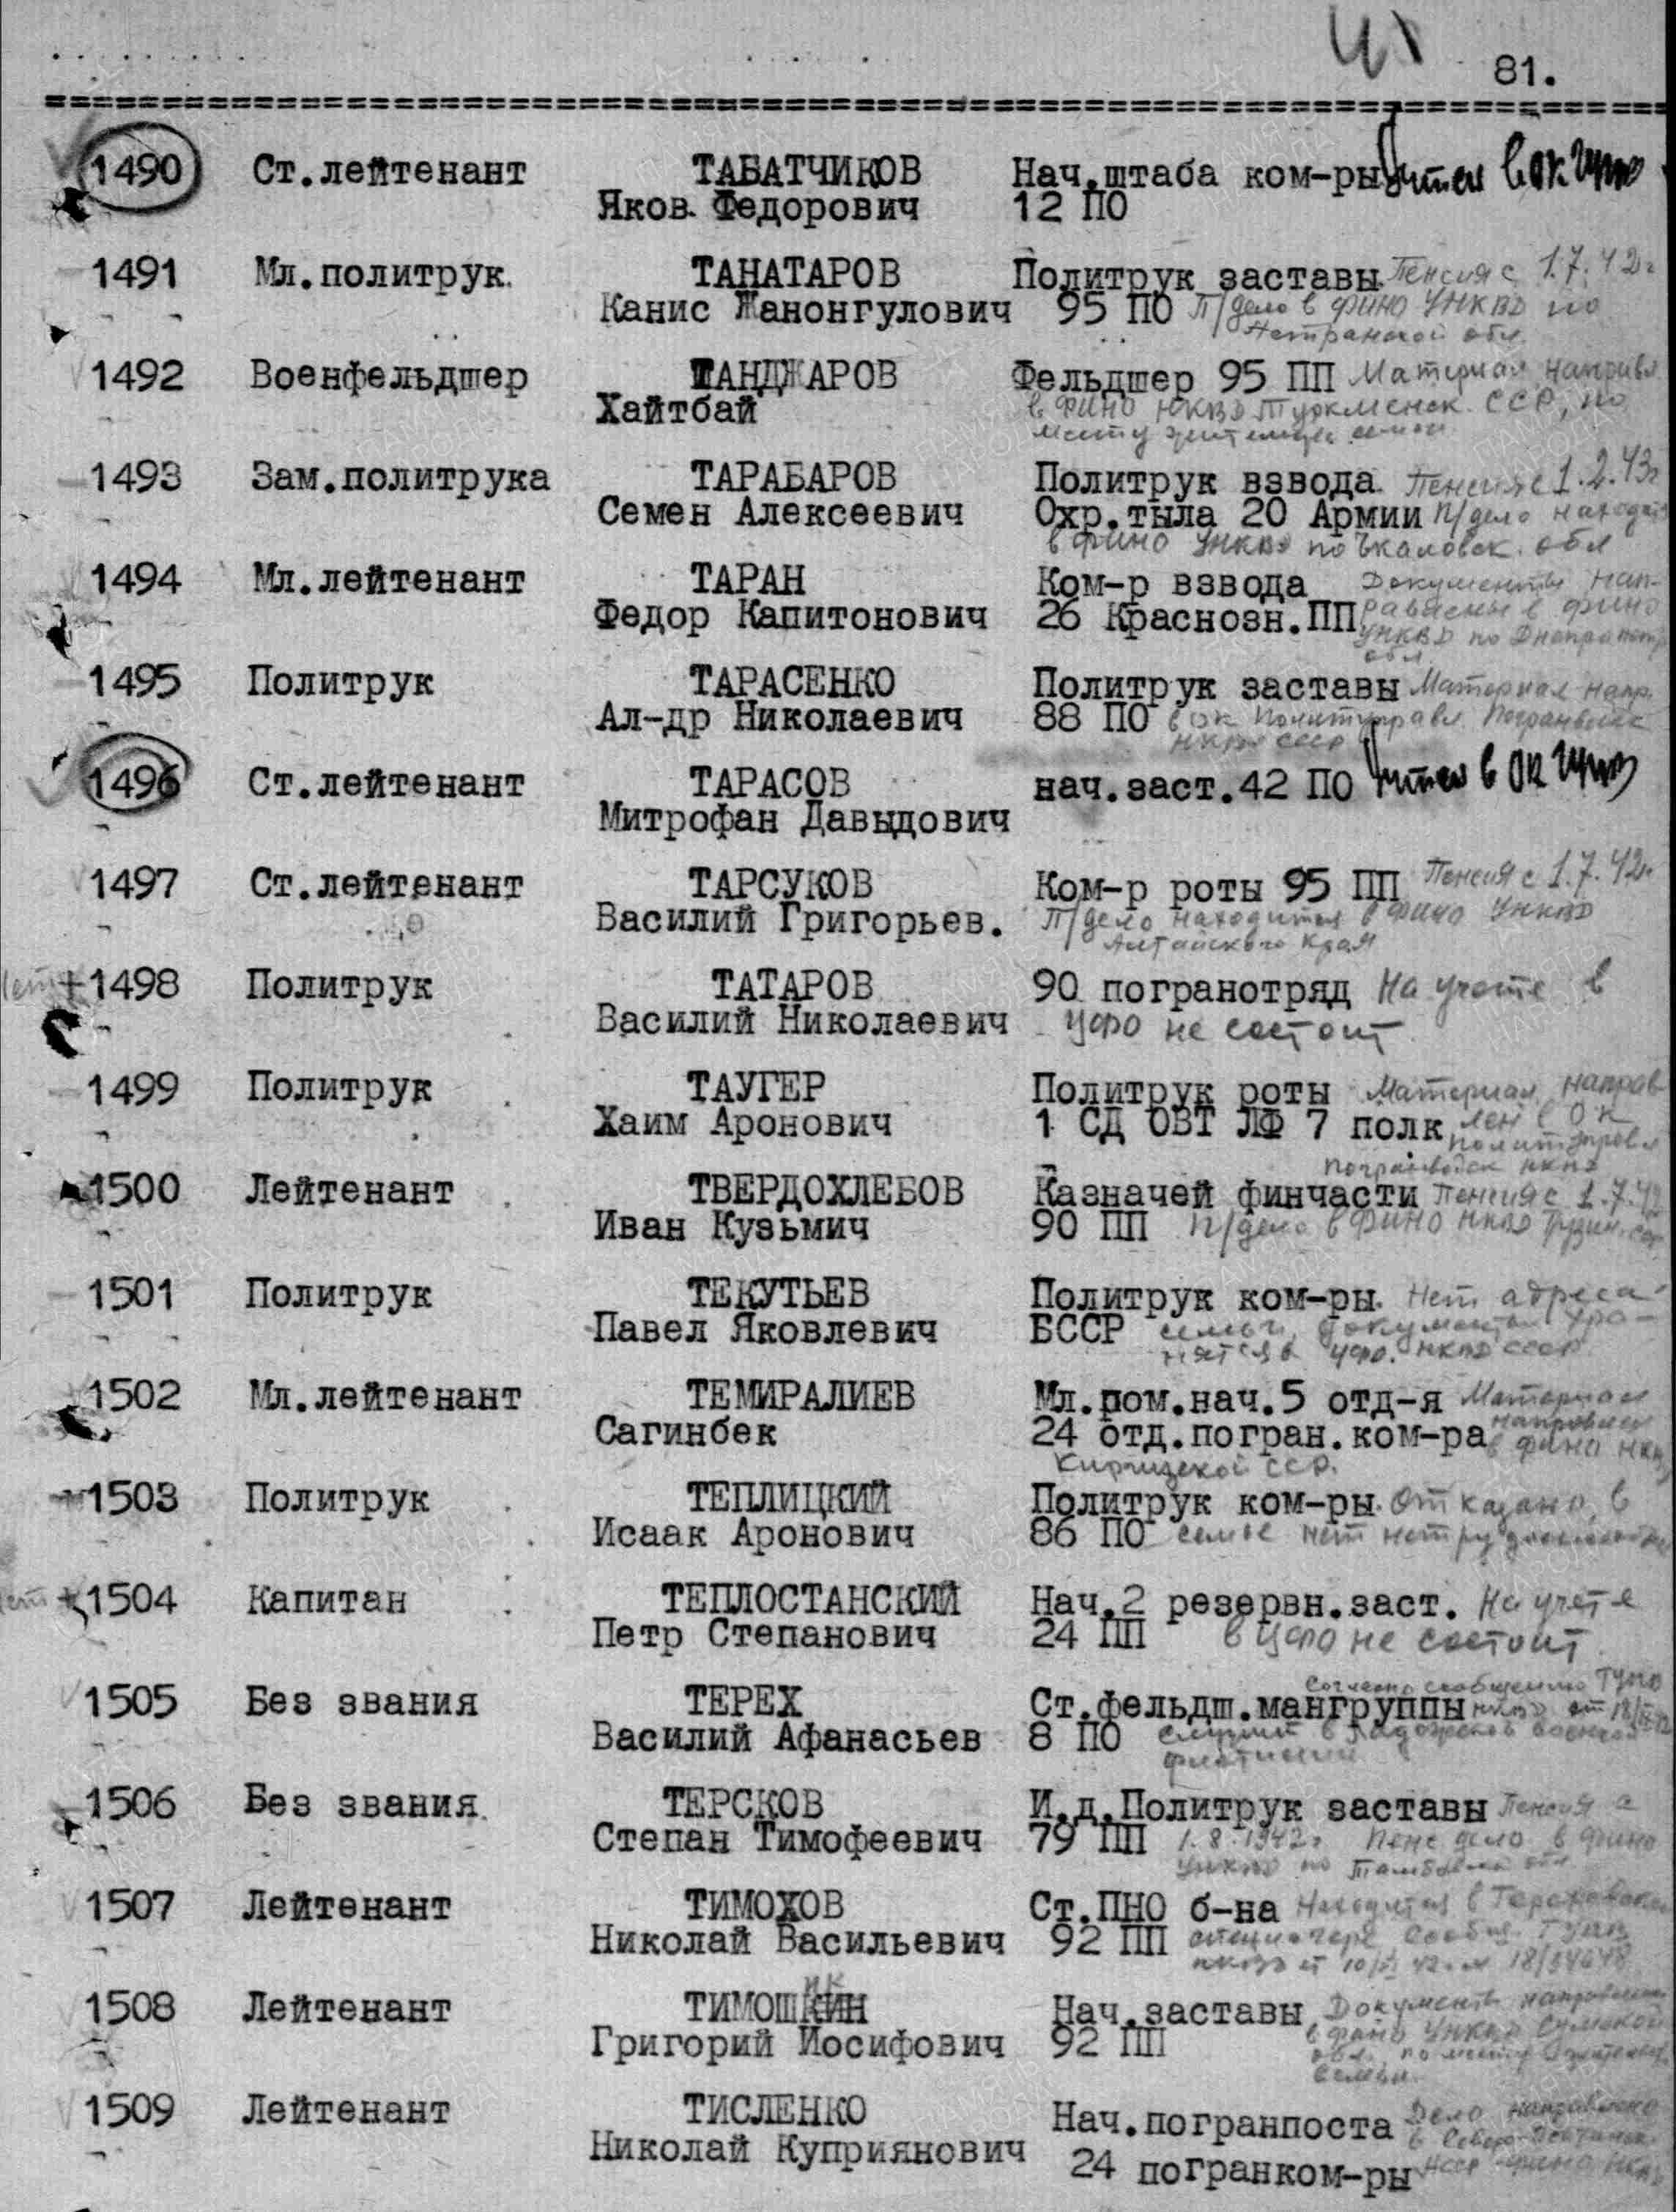 81.
1490 Ст.лейтенант ТАБАТЧИКОВ Нач.штаба ком-ры
Яков Федорович 12 ПО
1491 Мл.политрук. ТАНАТАРОВ Политрук заставы Пенсия с 1.7.42г
Канис Жанонгулович 95 ПО П/дело в ФИНО УНКВД по
обл.
1492 Военфельдшер ТАНДЖАРОВ Фельдшер 95 ПП Материал направл
Хайтбай в ФИНО НКВД Туркменск. ССР, по
месту жительства семьи
1493 Зам.политрука ТАРАБАРОВ Политрук взвода Пенсия с 1.2.43г
Семен Алексеевич Охр.тыла 20 Армии П/дело находит
в ФИНО УНКВД по Чкаловск. обл
1494 Мл.лейтенант ТАРАН Ком-р взвода Документы нап-
Федор Капитонович 26 Краснозн.ПП равлены в фино
УНКВД по Днепропетр
обл.
1495 Политрук ТАРАСЕНКО Политрук заставы Материал напр.
Ал-др Николаевич 88 ПО в ОК Политуправл. Погранвойск
НКВД СССР
1496 Ст.лейтенант ТАРАСОВ нач.заст.42 ПО в ОК
Митрофан Давыдович
1497 Ст.лейтенант ТАРСУКОВ Ком-р роты 95 ПП Пенсия с 1.7.42г.
Василий Григорьев. П/дело находится в ФИНО УНКВД
Алтайского края
1498 Политрук ТАТАРОВ 90 погранотряд На учете в
Василий Николаевич ЦФПО не состоит
1499 Политрук ТАУГЕР Политрук роты Материал направ
Хаим Аронович 1 СД ОВТ ЛФ 7 полк лен в ОК
политуправл
погранвойск НКВД
1500 Лейтенант ТВЕРДОХЛЕБОВ Казначей финчасти Пенсия с 1.7.42
Иван Кузьмич 90 ПП П/дело в ФИНО НКВД Грузин.
1501 Политрук ТЕКУТЬЕВ Политрук ком-ры. Нет адреса
Павел Яковлевич БССР семьи, документы хра-
нятся в НКВД СССР
1502 Мл.лейтенант ТЕМИРАЛИЕВ Мл.пом.нач.5 отд-я Материал
направлен
Сагинбек 24 отд.погран.ком-ра в фино НКВД
Киргизской ССР.
1503 Политрук ТЕПЛИЦКИЙ Политрук ком-ры. Отказано, в
Исаак Аронович 86 ПО семье нет
1504 Капитан ТЕПЛОСТАНСКИЙ Нач.2 резервн.заст. На учете
Петр Степанович 24 ПП в ЦФПО не состоит
Согласно сообщению
1505 Без звания ТЕРЕХ Ст.фельдш.мангруппы НКВД от
Василий Афанасьев 8 ПО служит в Ладожской военной
флотилии
1506 Без звания. ТЕРСКОВ И.д.Политрук заставы Пенсия с
Степан Тимофеевич 79 ПП 1.8.1942г Пенс дело в фино
УНКВД по Тамбовской обл.
1507 Лейтенант ТИМОХОВ Ст.ПНО б-на Находится в
Николай Васильевич 92 ПП спецлагере
1508 Лейтенант ТИМОШКИН Нач.заставы Документы направлены
Григорий Иосифович 92 ПП в фино УНКВД Сумской
обл. по месту
семьи.
1509 Лейтенант ТИСЛЕНКО Нач.погранпоста Дело направлено
Николай Куприянович 24 погранком-ры